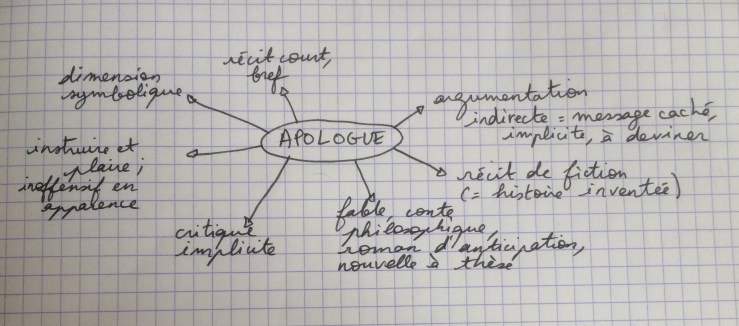 récit court,
bref
dimension
symbolique
argumentation
indirecte = message caché,
implicite, à deviner
APOLOGUE
instruire et
plaire ;
inoffensif en
apparence
récit de fiction
(= histoire inventée)
critique
implicite
fable, conte
philosophique,
roman d'anticipation,
nouvelle à thèse